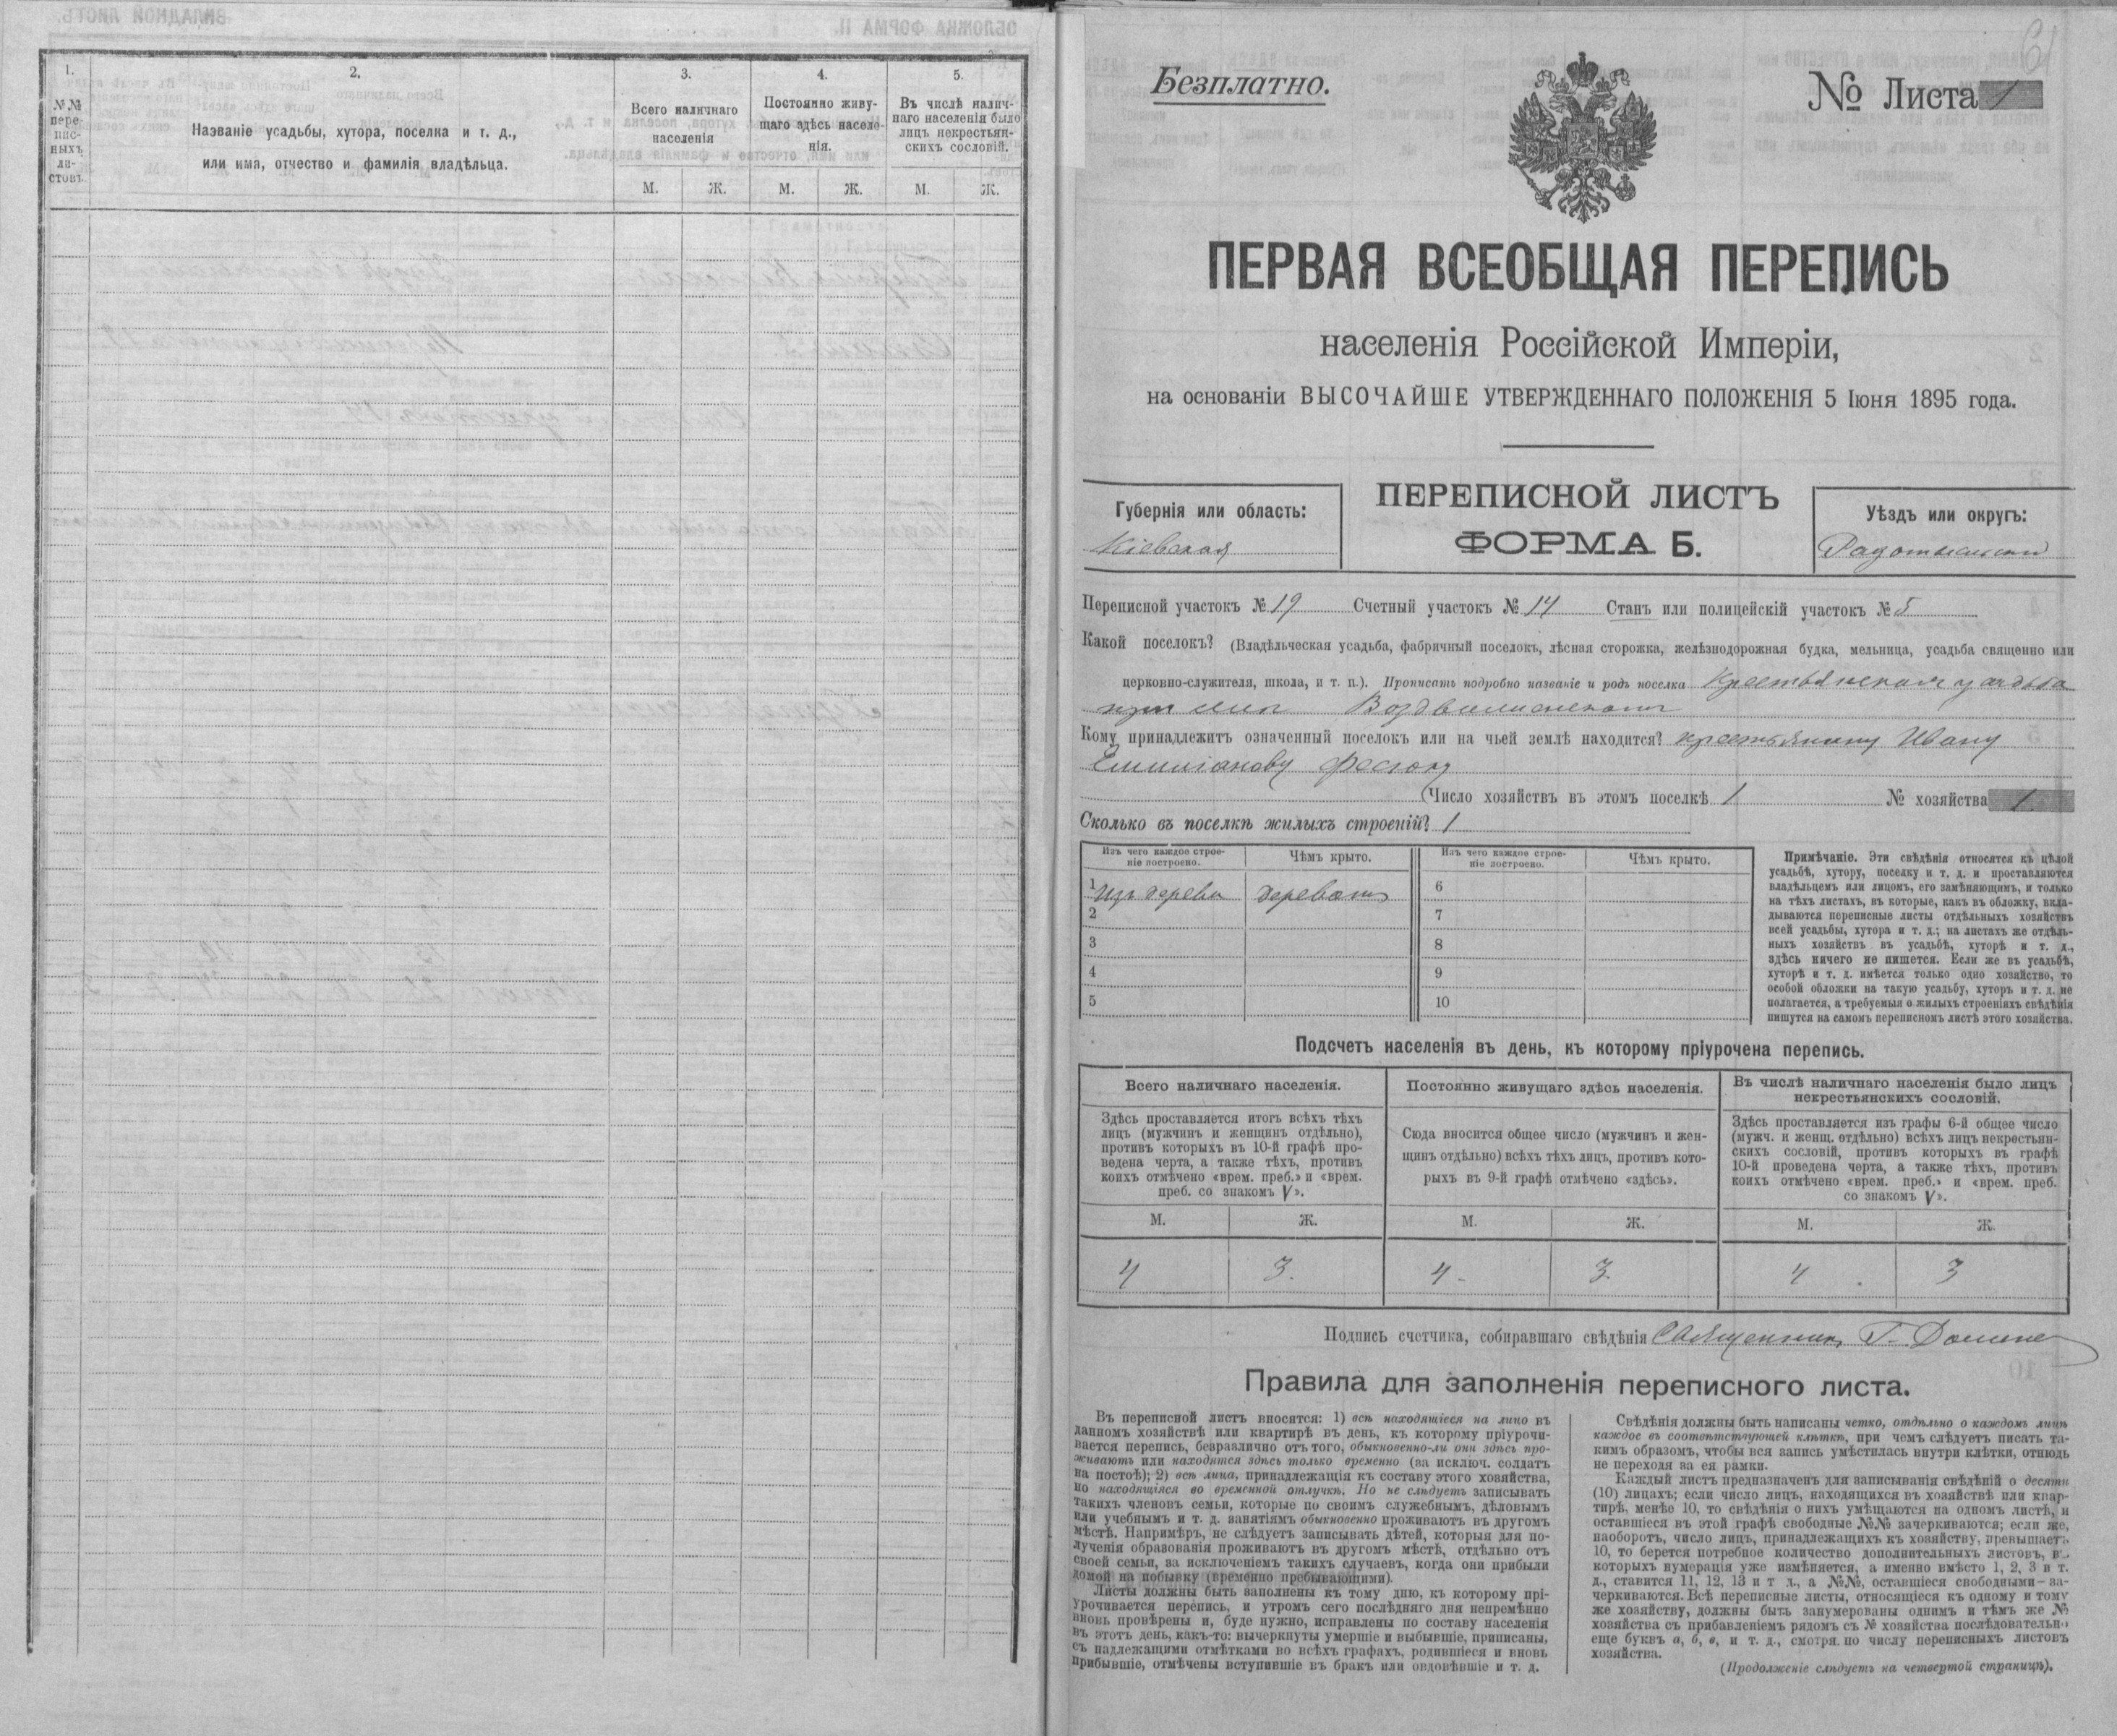 1.
2.
3.
4.
5.
№№ пере-
пис-
ныхъ
ли-
стовъ.
Названіе усадьбы, хутора, поселка и т. д.,
или имя, отчество и фамилія владѣльца.
Всего наличнаго
населенія
Постоянно живу-
щаго здѣсь населе-
нія.
Въ числѣ налич-
наго населенія было
лицъ некрестьян-
скихъ сословій.
М. Ж. М. Ж. М. Ж.
61
Безплатно.
№ Листа 1
ПЕРВАЯ ВСЕОБЩАЯ ПЕРЕПИСЬ
населенія Россійской Имперіи,
на основаніи ВЫСОЧАЙШЕ УТВЕРЖДЕННАГО ПОЛОЖЕНІЯ 5 Іюня 1895 года.
Губернія или область:
Кіевская
ПЕРЕПИСНОЙ ЛИСТЪ
ФОРМА Б.
Уѣздъ или округъ:
Радомысльскій
Переписной участокъ № 19 Счетный участокъ № 14 Станъ или полицейскій участокъ № 5
Какой поселокъ? (Владѣльческая усадьба, фабричный поселокъ, лѣсная сторожка, желѣзнодорожная будка, мельница, усадьба священно или
церковно-служителя, школа, и т. п.). Прописать подробно названіе и родъ поселка Крестьянская усадьба
при Воздвиженскомъ
Кому принадлежитъ означенный поселокъ или на чьей землѣ находится? крестьянину Ивану
Емиліанову
Число хозяйствъ въ этомъ поселкѣ 1 № хозяйства 1
Сколько въ поселкѣ жилыхъ строеній? 1
Изъ чего каждое строе-
ніе построено.
Чѣмъ крыто.
Изъ чего каждое строе-
ніе построено.
Чѣмъ крыто.
1 Изъ дерева деревомъ 6
2 7
3 8
4 9
5 10
Примѣчаніе. Эти свѣдѣнія относятся къ цѣлой
усадьбѣ, хутору, поселку и т. д. и проставляются
владѣльцемъ или лицомъ, его замѣняющимъ, и только
на тѣхъ листахъ, въ которые, какъ въ обложку, вкла-
дываются переписные листы отдѣльныхъ хозяйствъ
всей усадьбы, хутора и т. д.; на листахъ же отдѣль-
ныхъ хозяйствъ въ усадьбѣ, хуторѣ и т. д.,
здѣсь ничего не пишется. Если же въ усадьбѣ,
хуторѣ и т. д. имѣется только одно хозяйство, то
особой обложки на такую усадьбу, хуторъ и т. д. не
полагается, а требуемыя о жилыхъ строеніяхъ свѣдѣнія
пишутся на самомъ переписномъ листѣ этого хозяйства.
Подсчетъ населенія въ день, къ которому пріурочена перепись.
Всего наличнаго населенія.
Здѣсь проставляется итогъ всѣхъ тѣхъ
лицъ (мужчинъ и женщинъ отдѣльно),
противъ которыхъ въ 10-й графѣ про-
ведена черта, а также тѣхъ, противъ
коихъ отмѣчено «врем. преб.» и «врем.
преб. со знакомъ V».
Постоянно живущаго здѣсь населенія.
Сюда вносится общее число (мужчинъ и жен-
щинъ отдѣльно) всѣхъ тѣхъ лицъ, противъ кото-
рыхъ въ 9-й графѣ отмѣчено «здѣсь».
Въ числѣ наличнаго населенія было лицъ
некрестьянскихъ сословій.
Здѣсь проставляется изъ графы 6-й общее число
(мужч. и женщ. отдѣльно) всѣхъ лицъ некрестьян-
скихъ сословій, противъ которыхъ въ графѣ
10-й проведена черта, а также тѣхъ, противъ
коихъ отмѣчено «врем. преб.» и «врем. преб.
со знакомъ V».
М. Ж. М. Ж. М. Ж.
4 3. 4- 3. 4. 3
Подпись счетчика, собиравшаго свѣдѣнія Священникъ Г.
Правила для заполненія переписного листа.
Въ переписной листъ вносятся: 1) всѣ находящіеся на лицо въ
данномъ хозяйствѣ или квартирѣ въ день, къ которому пріурочи-
вается перепись, безразлично отъ того, обыкновенно-ли они здѣсь про-
живаютъ или находятся здѣсь только временно (за исключ. солдатъ
на постоѣ); 2) всѣ лица, принадлежащія къ составу этого хозяйства,
но находящіяся во временной отлучкѣ. Но не слѣдуетъ записывать
такихъ членовъ семьи, которые по своимъ служебнымъ, дѣловымъ
или учебнымъ и т. д. занятіямъ обыкновенно проживаютъ въ другомъ
мѣстѣ. Напримѣръ, не слѣдуетъ записывать дѣтей, которыя для по-
лученія образованія проживаютъ въ другомъ мѣстѣ, отдѣльно отъ
своей семьи, за исключеніемъ такихъ случаевъ, когда они прибыли
домой на побывку (временно пребывающими).
Листы должны быть заполнены къ тому дню, къ которому прі-
урочивается перепись, и утромъ сего послѣдняго дня непремѣнно
вновь провѣрены и, буде нужно, исправлены по составу населенія
въ этотъ день, какъ-то: вычеркнуты умершіе и выбывшіе, приписаны,
съ надлежащими отмѣтками во всѣхъ графахъ, родившіеся и вновь
прибывшіе, отмѣчены вступившіе въ бракъ или овдовѣвшіе и т. д.
Свѣдѣнія должны быть написаны четко, отдѣльно о каждомъ лицѣ
каждое въ соотвѣтствующей клѣткѣ, при чемъ слѣдуетъ писать та-
кимъ образомъ, чтобы вся запись умѣстилась внутри клѣтки, отнюдь
не переходя за ея рамки.
Каждый листъ предназначенъ для записыванія свѣдѣній о десяти
(10) лицахъ; если число лицъ, находящихся въ хозяйствѣ или квар-
тирѣ, менѣе 10, то свѣдѣнія о нихъ умѣщаются на одномъ листѣ, и
оставшіеся въ этой графѣ свободные №№ зачеркиваются; если же,
наоборотъ, число лицъ, принадлежащихъ къ хозяйству, превышаетъ
10, то берется потребное количество дополнительныхъ листовъ, въ
которыхъ нумерація уже измѣняется, а именно вмѣсто 1, 2, 3 и т.
д., ставится 11, 12, 13 и т д., а №№, оставшіеся свободными—за-
черкиваются. Всѣ переписные листы, относящіеся къ одному и тому
же хозяйству, должны быть занумерованы однимъ и тѣмъ же №
хозяйства съ прибавленіемъ рядомъ съ № хозяйства послѣдовательно
еще буквъ а, б, в, и т. д., смотря по числу переписныхъ листовъ
хозяйства.
(Продолженіе слѣдуетъ на четвертой страницѣ).